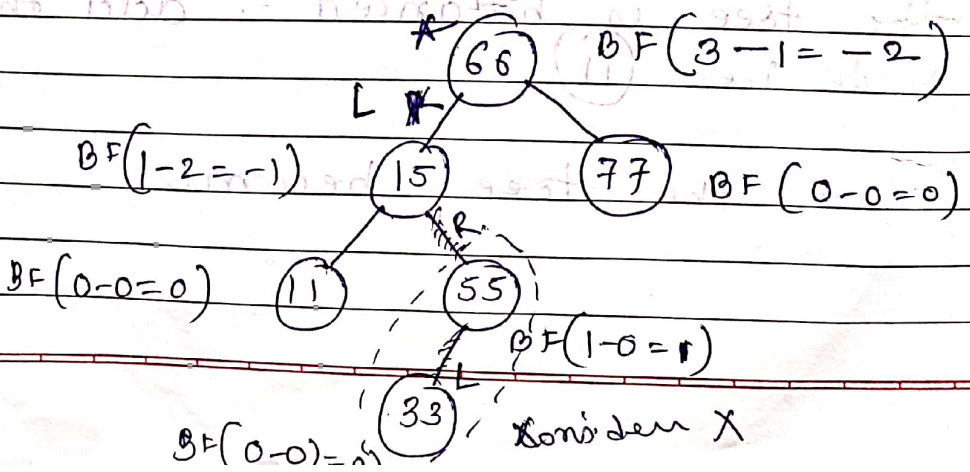 66 BF(3-1=-2)
L
BF(1-2=-1) 15 77 BF(0-0=0)
R
BF(0-0=0) 11 55
BF(1-0=1)
L
33
BF(0-0)=0 X